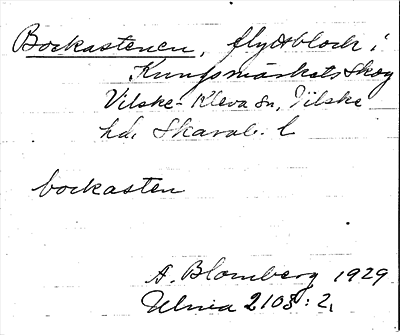 Bockastenen, flyttblock i
Kungsmarkets skog
Vilske-Kleva sn, Vilske
hd. Skarab. l
bockasten
A. Blomberg 1929
Ulma 2108:2.